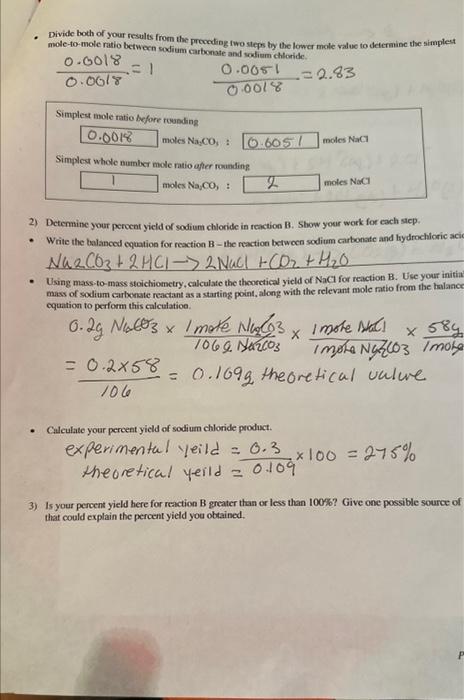 • Divide both of your results from the preceding two steps by the lower mole value to determine the simplest
mole-to-mole ratio between sodium carbonate and sodium chloride.
0.0018 / 0.0018 = 1    0.0051 / 0.0018 = 2.83
Simplest mole ratio before rounding
0.0018 moles Na₂CO₃ : 0.0051 moles NaCl
Simplest whole number mole ratio after rounding
1 moles Na₂CO₃ : 2 moles NaCl
2) Determine your percent yield of sodium chloride in reaction B. Show your work for each step.
• Write the balanced equation for reaction B – the reaction between sodium carbonate and hydrochloric aci
Na2CO3 + 2HCl → 2NaCl + CO2 + H2O
• Using mass-to-mass stoichiometry, calculate the theoretical yield of NaCl for reaction B. Use your initia
mass of sodium carbonate reactant as a starting point, along with the relevant mole ratio from the balance
equation to perform this calculation.
0.2g Na2CO3 × 1 mole Na2CO3 / 106g Na2CO3 × 1 mole NaCl / 1 mole Na2CO3 × 58g / 1 mole
= 0.2×58 / 106 = 0.109g theoretical value
• Calculate your percent yield of sodium chloride product.
experimental yeild = 0.3 / theoretical yeild = 0.109 × 100 = 275%
3) Is your percent yield here for reaction B greater than or less than 100%? Give one possible source of
that could explain the percent yield you obtained.
P